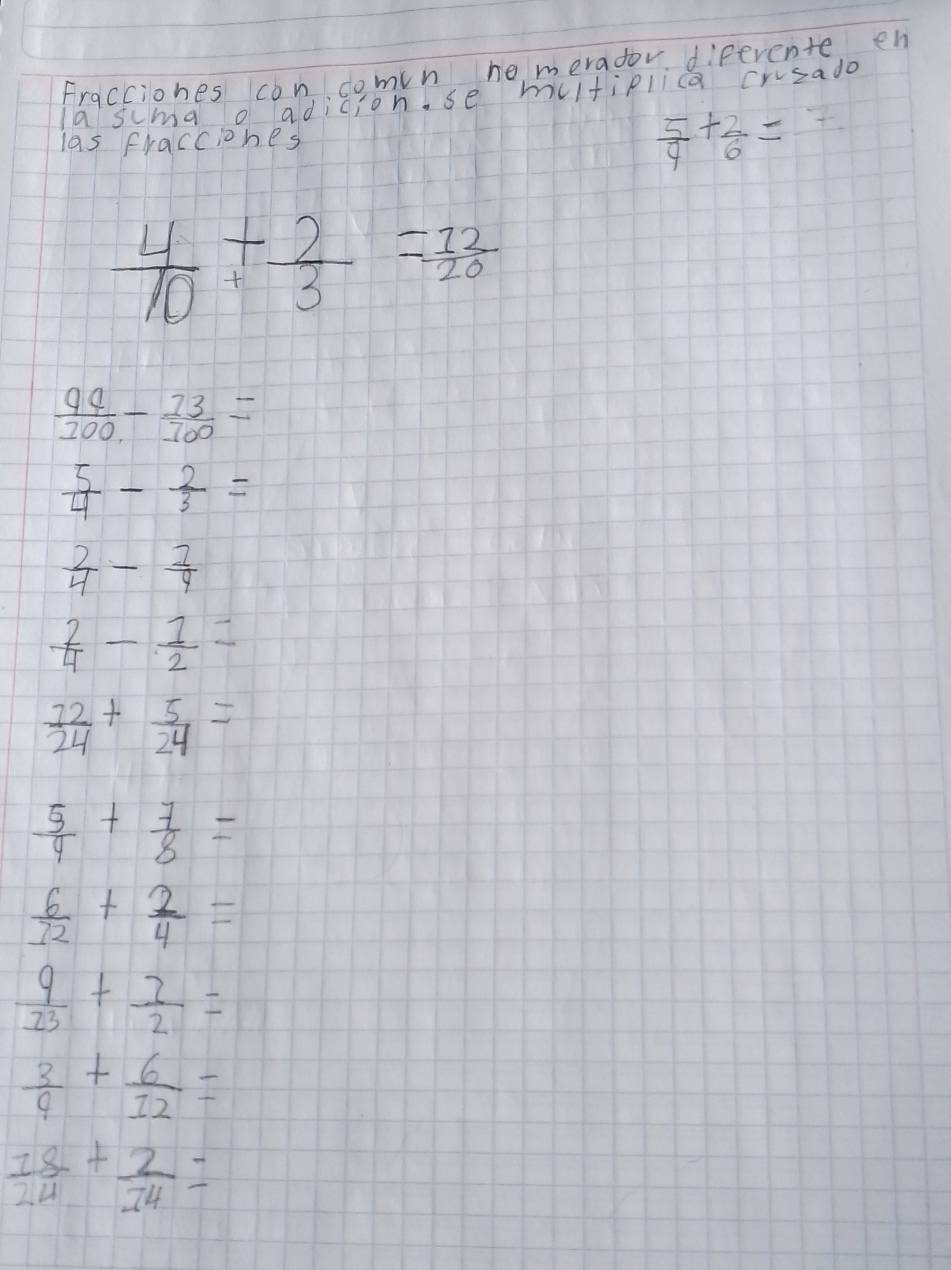 Fracciones con comun nomerador diferente en
la suma o adicion. se multiplica crusado
las fracciones
5/9 + 2/6 =
4/10 + 2/3 = 12/20
99/100 - 13/100 =
5/4 - 2/3 =
2/4 - 1/9
2/4 - 1/2 =
12/24 + 5/24 =
5/9 + 7/8 =
6/12 + 2/4 =
9/13 + 1/2 =
3/9 + 6/12 =
18/24 + 2/14 =